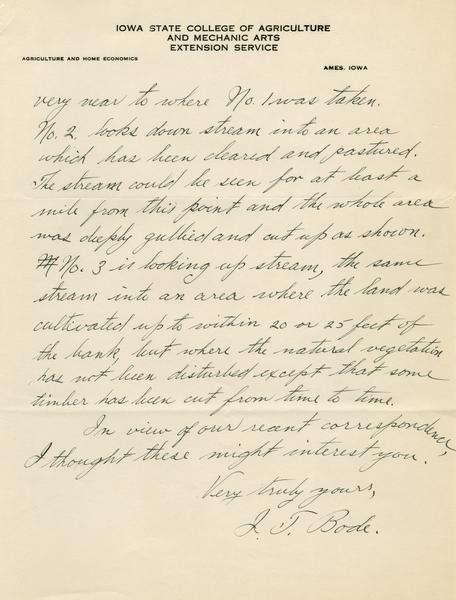 IOWA STATE COLLEGE OF AGRICULTURE
AND MECHANIC ARTS
EXTENSION SERVICE
AGRICULTURE AND HOME ECONOMICS
AMES, IOWA
very near to where No. 1 was taken.
No. 2. looks down stream into an area
which has been cleared and pastured.
The stream could be seen for at least a
mile from this point and the whole area
was deeply gullied and cut up as shown.
No. 3 is looking up stream, the same
stream into an area where the land was
cultivated up to within 20 or 25 feet of
the bank, but where the natural vegetation
has not been disturbed except that some
timber has been cut from time to time.
In view of our recent correspondence,
I thought these might interest you.
Very truly yours,
I. T. Bode.